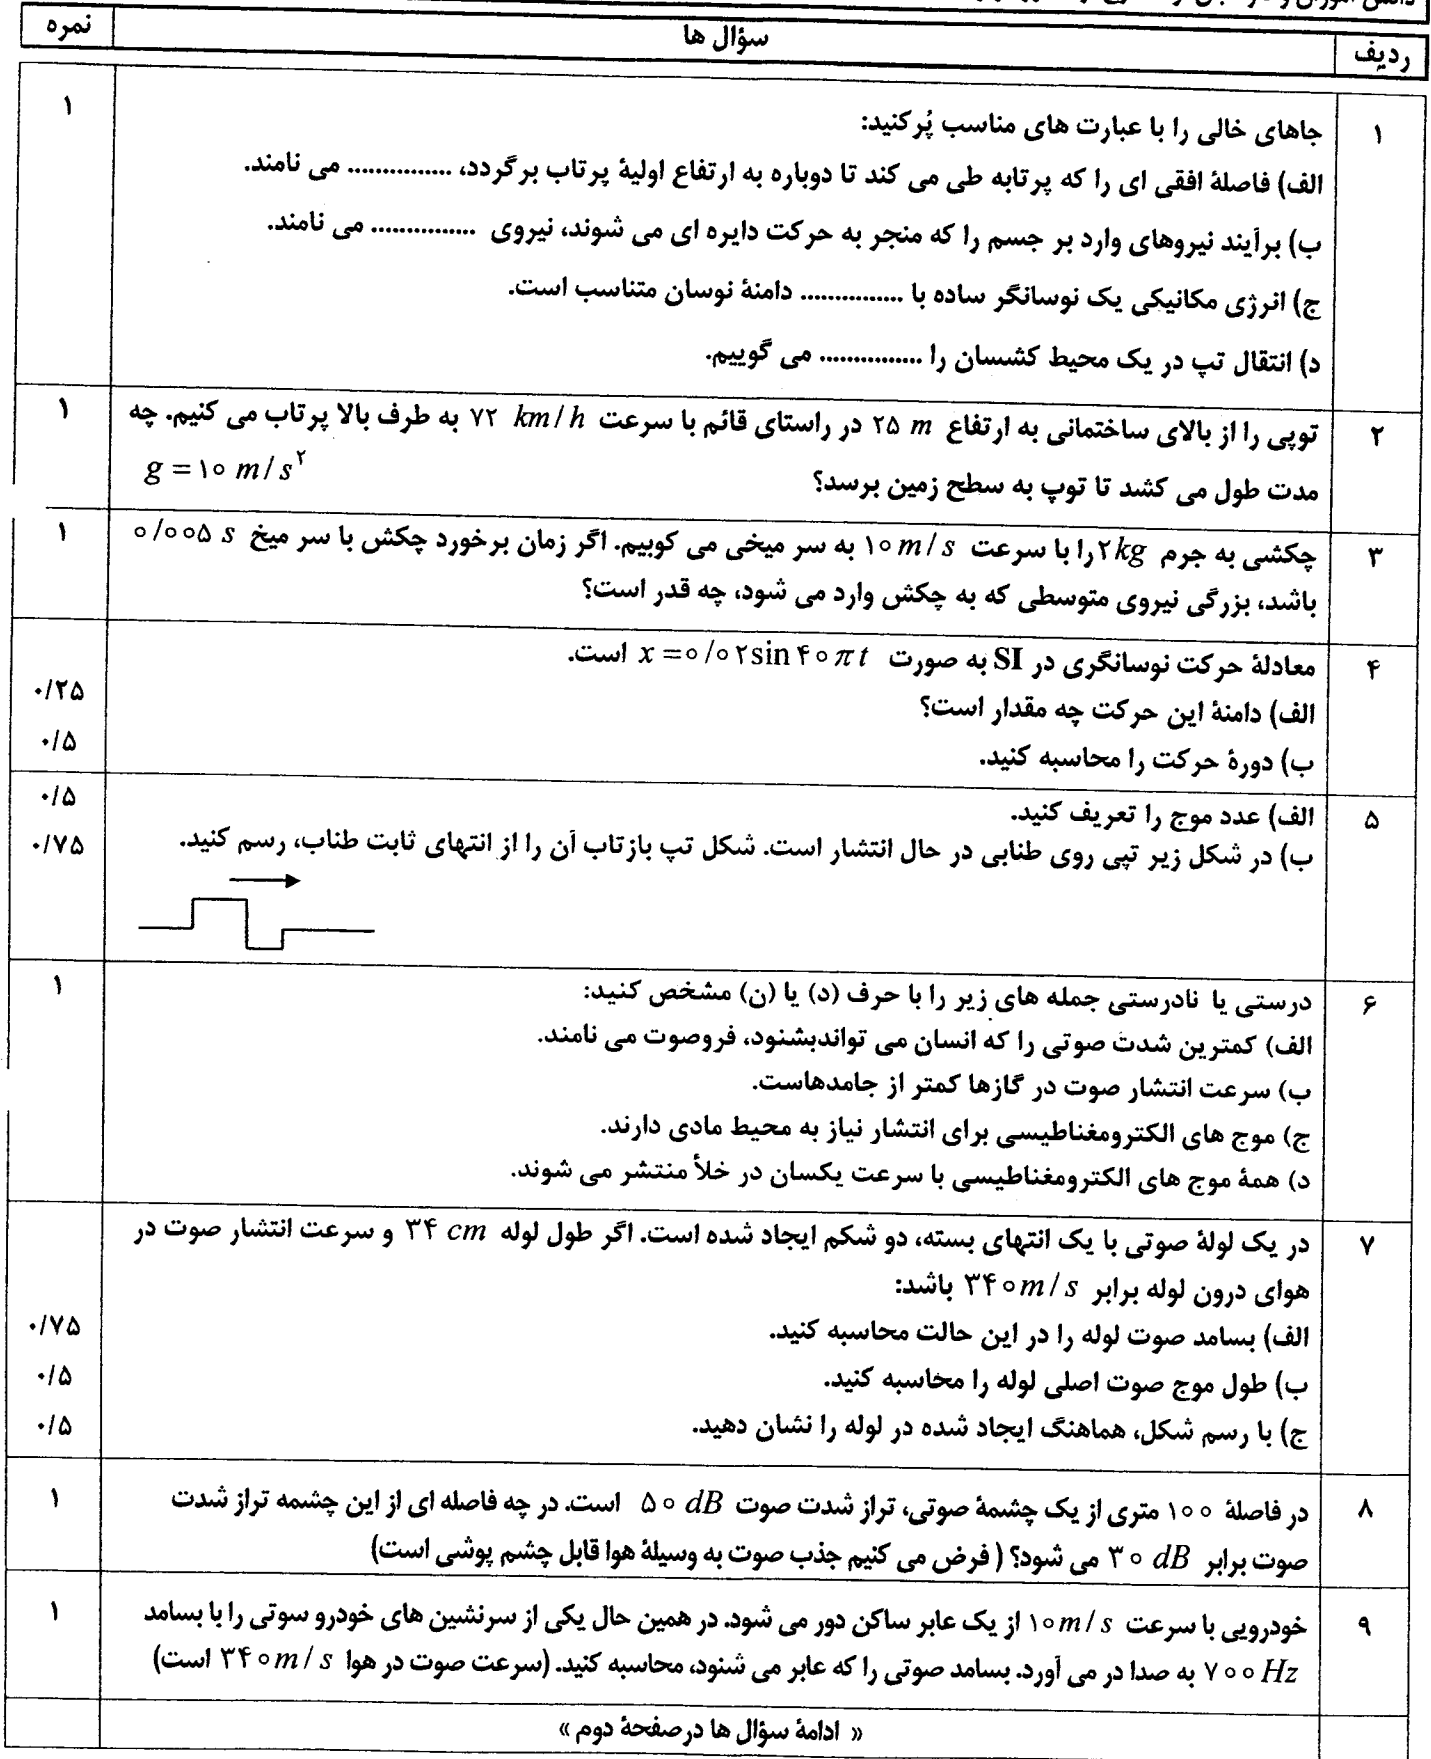 نمره
سؤال ها
ردیف
۱
جاهای خالی را با عبارت های مناسب پُرکنید:
۱
الف) فاصلهٔ افقی ای را که پرتابه طی می کند تا دوباره به ارتفاع اولیهٔ پرتاب برگردد، ............... می نامند.
ب) برآیند نیروهای وارد بر جسم را که منجر به حرکت دایره ای می شوند، نیروی ............... می نامند.
ج) انرژی مکانیکی یک نوسانگر ساده با ............... دامنهٔ نوسان متناسب است.
د) انتقال تپ در یک محیط کشسان را ............... می گوییم.
۲
توپی را از بالای ساختمانی به ارتفاع ۲۵ m در راستای قائم با سرعت ۷۲ km/h به طرف بالا پرتاب می کنیم. چه
۱
مدت طول می کشد تا توپ به سطح زمین برسد؟ g = ۱۰ m/s^۲
۳
چکشی به جرم ۲kg را با سرعت ۱۰ m/s به سر میخی می کوبیم. اگر زمان برخورد چکش با سر میخ ۰/۰۰۵ s
۱
باشد، بزرگی نیروی متوسطی که به چکش وارد می شود، چه قدر است؟
۴
معادلهٔ حرکت نوسانگری در SI به صورت x = ۰/۰۲ sin ۴۰πt است.
الف) دامنهٔ این حرکت چه مقدار است؟
۰/۲۵
ب) دورهٔ حرکت را محاسبه کنید.
۰/۵
۵
الف) عدد موج را تعریف کنید.
۰/۵
ب) در شکل زیر تپی روی طنابی در حال انتشار است. شکل تپ بازتاب آن را از انتهای ثابت طناب، رسم کنید.
۰/۷۵
۶
درستی یا نادرستی جمله های زیر را با حرف (د) یا (ن) مشخص کنید:
۱
الف) کمترین شدت صوتی را که انسان می تواندبشنود، فروصوت می نامند.
ب) سرعت انتشار صوت در گازها کمتر از جامدهاست.
ج) موج های الکترومغناطیسی برای انتشار نیاز به محیط مادی دارند.
د) همهٔ موج های الکترومغناطیسی با سرعت یکسان در خلأ منتشر می شوند.
۷
در یک لولهٔ صوتی با یک انتهای بسته، دو شکم ایجاد شده است. اگر طول لوله ۳۴ cm و سرعت انتشار صوت در
هوای درون لوله برابر ۳۴۰ m/s باشد:
الف) بسامد صوت لوله را در این حالت محاسبه کنید.
۰/۷۵
ب) طول موج صوت اصلی لوله را محاسبه کنید.
۰/۵
ج) با رسم شکل، هماهنگ ایجاد شده در لوله را نشان دهید.
۰/۵
۸
در فاصلهٔ ۱۰۰ متری از یک چشمهٔ صوتی، تراز شدت صوت ۵۰ dB است. در چه فاصله ای از این چشمه تراز شدت
۱
صوت برابر ۳۰ dB می شود؟ ( فرض می کنیم جذب صوت به وسیلهٔ هوا قابل چشم پوشی است)
۹
خودرویی با سرعت ۱۰ m/s از یک عابر ساکن دور می شود. در همین حال یکی از سرنشین های خودرو سوتی را با بسامد
۱
۷۰۰ Hz به صدا در می آورد. بسامد صوتی را که عابر می شنود، محاسبه کنید. (سرعت صوت در هوا ۳۴۰ m/s است)
« ادامهٔ سؤال ها درصفحهٔ دوم »